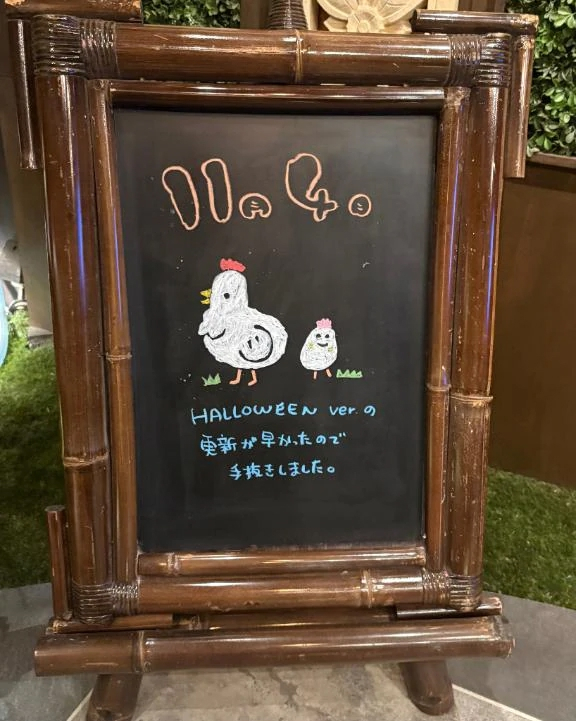 11月4日
HALLOWEEN ver.の
更新が早かったので
手抜きしました。